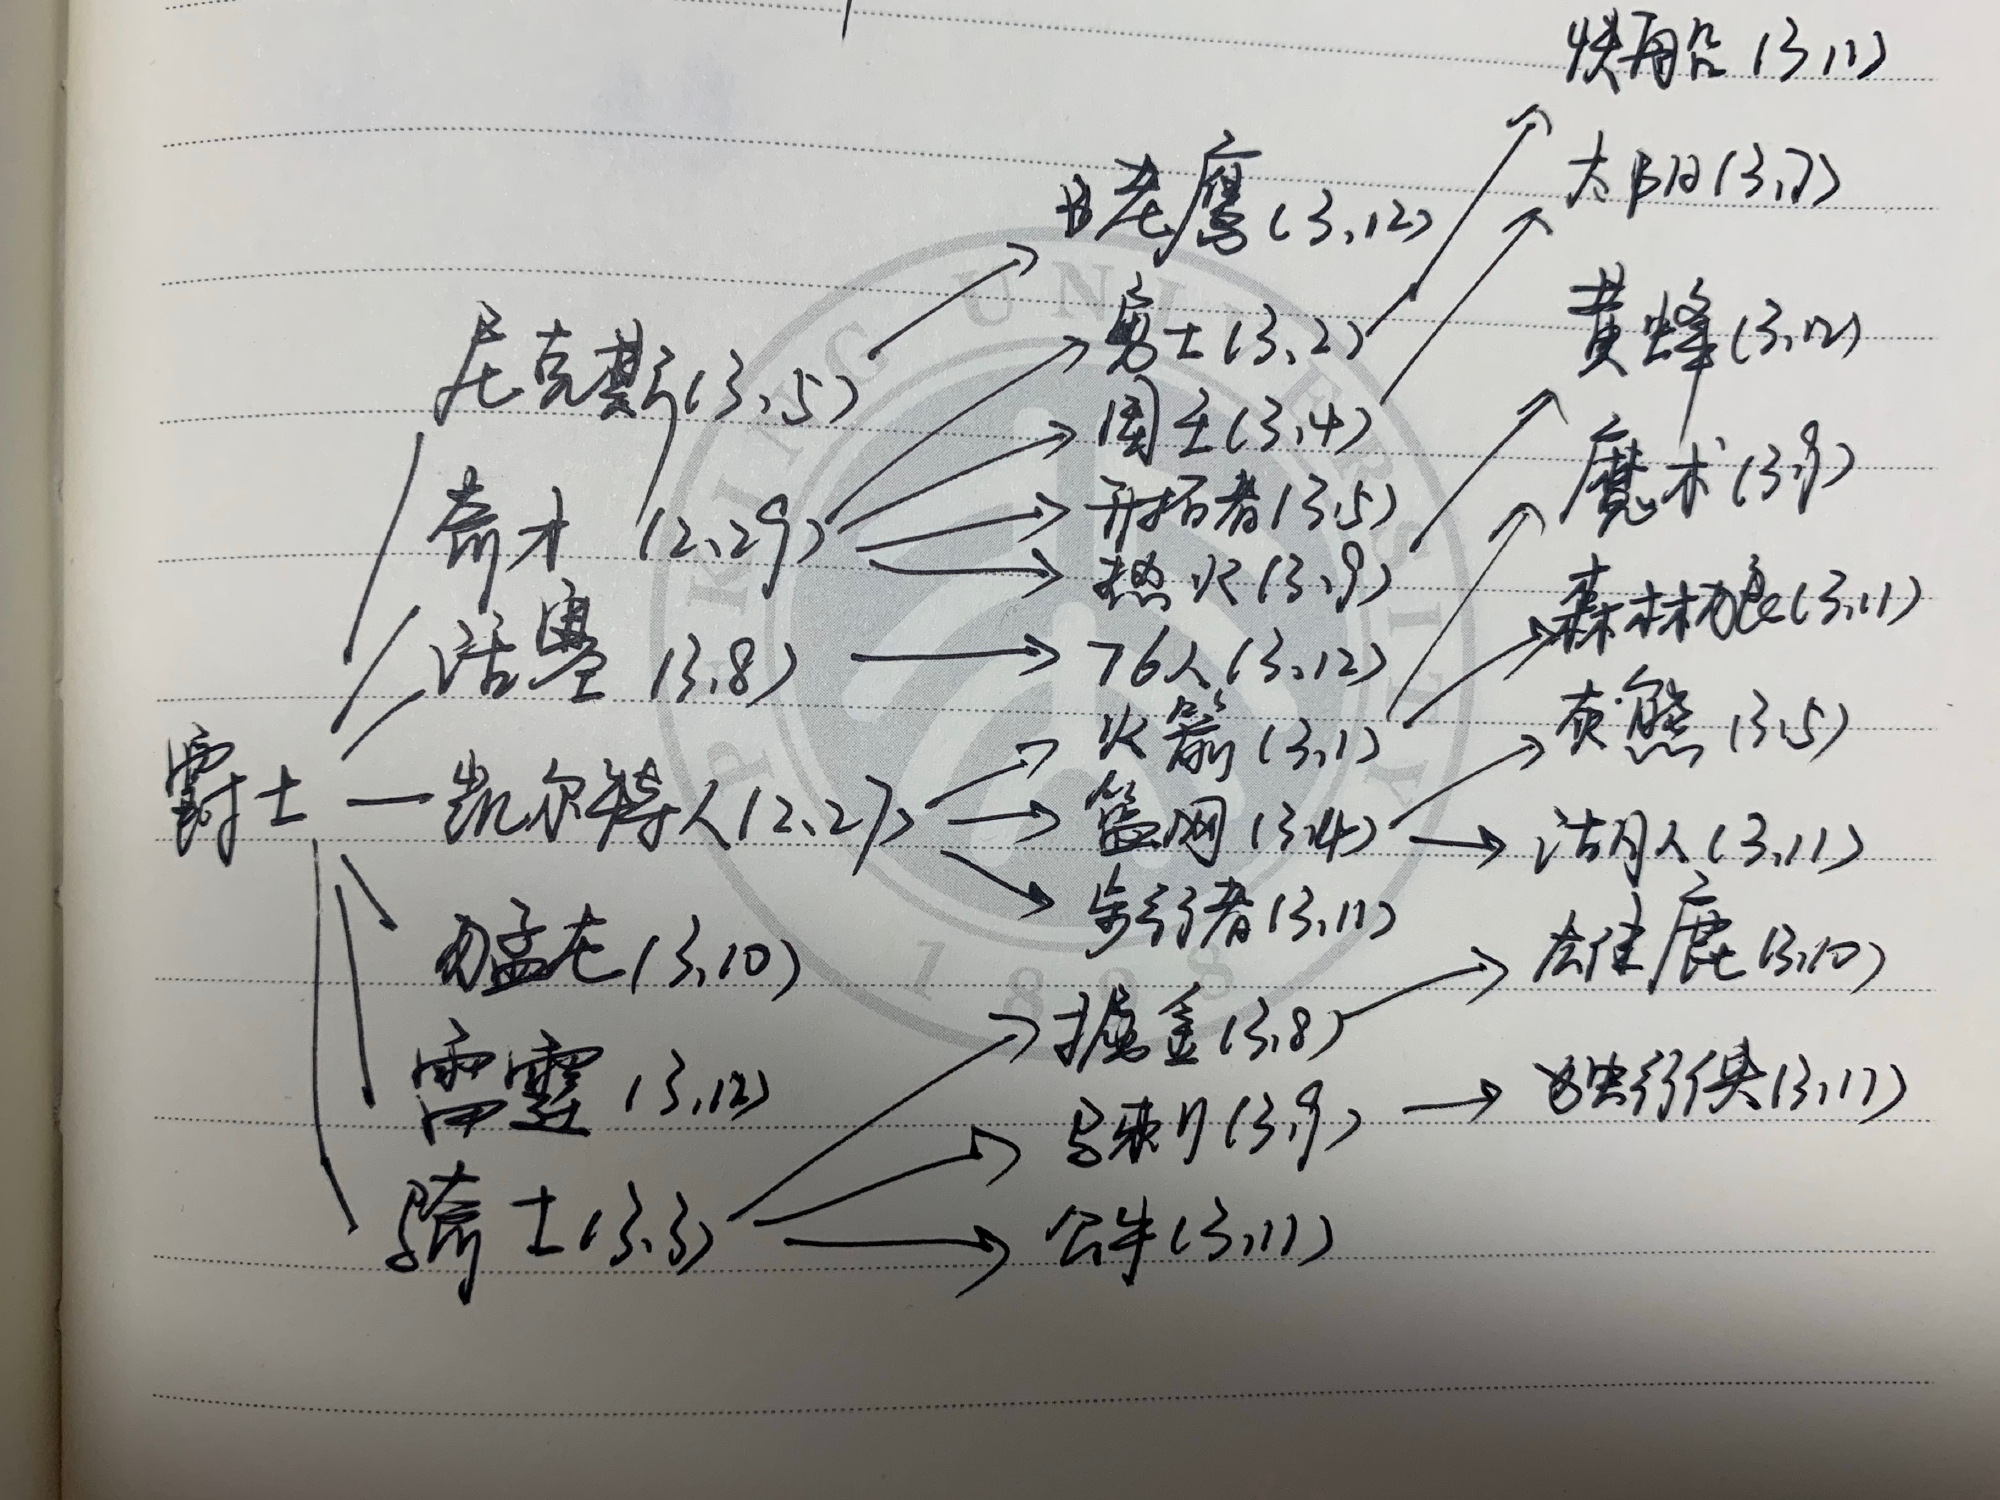 快船(3,11)
太阳(3,7)
黄蜂(3,12)
魔术(3,9)
森林狼(3,11)
灰熊(3,5)
活月人(3,11)
雄鹿(3,10)
独行侠(3,11)
老鹰(3,12)
勇士(3,2)
国王(3,4)
开拓者(3,5)
热火(3,9)
76人(3,12)
火箭(3,1)
篮网(3,4)
步行者(3,11)
掘金(3,8)
马刺(3,9)
公牛(3,11)
尼克斯(3,5)
奇才(2,29)
活塞(3,8)
凯尔特人(2,27)
猛龙(3,10)
雷霆(3,12)
骑士(3,3)
爵士
PEKING UNIVERSITY
1898